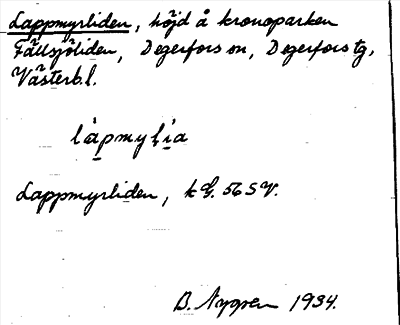 Lappmyrliden, höjd å kronoparken
Fällsjöliden, Degerfors sn, Degerfors tg,
Västerb.l.
Lappmyrliden, k G. 56 S V.
B. Nygren 1934.